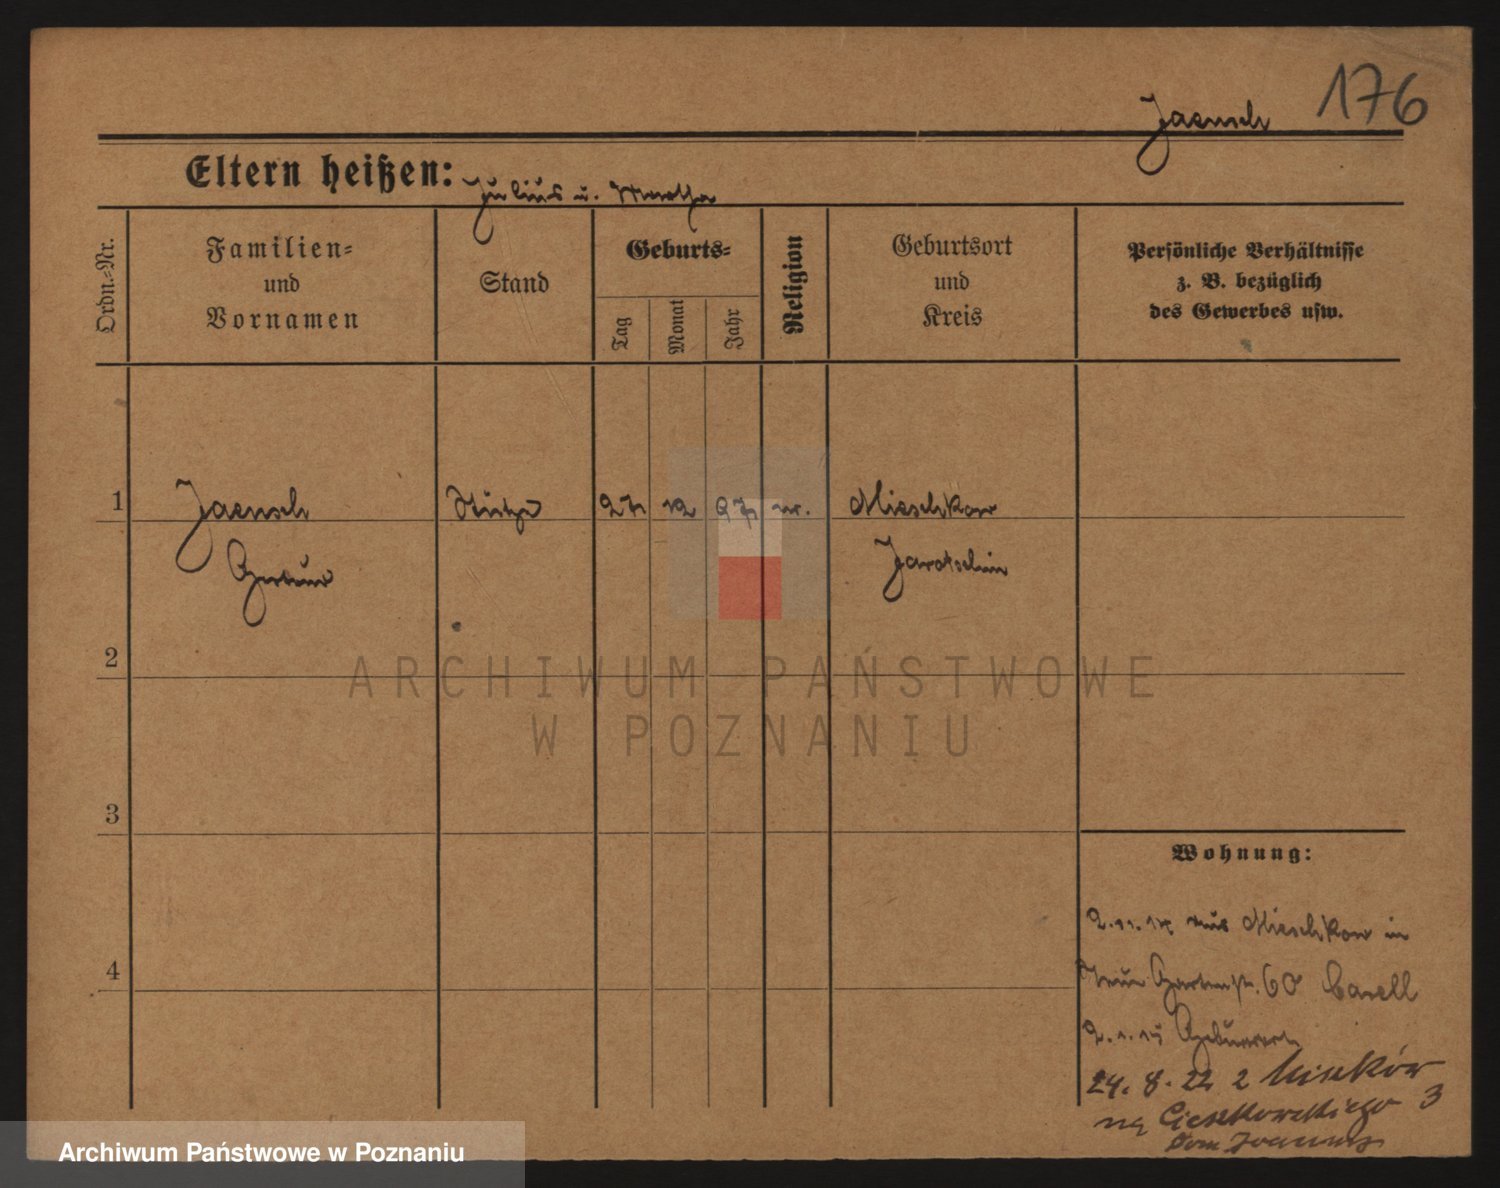 176
Jaensch
Eltern heißen: Julius u. Martha
Ordn.-Nr.
Familien-
und
Vornamen
Stand
Geburts-
Tag
Monat
Jahr
Religion
Geburtsort
und
Kreis
Persönliche Verhältnisse
z. B. bezüglich
des Gewerbes usw.
1
Jaensch
Stütze
27
12
97
Mieschkow
Gertrud
Jarotschin
2
ARCHIWUM PAŃSTWOWE
W POZNANIU
3
Wohnung:
2.11.14 aus Mieschkow in
Gartenstr. 60
4
2.1.15
24. 8. 22 z
na Cieszkowskiego 3
Dom
Archiwum Państwowe w Poznaniu